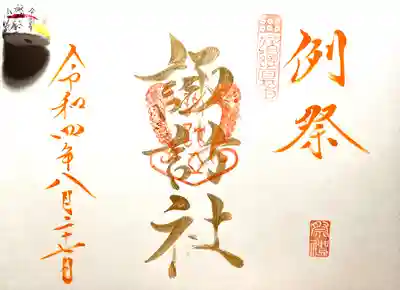 例祭
諏訪社
令和四年八月二十七日